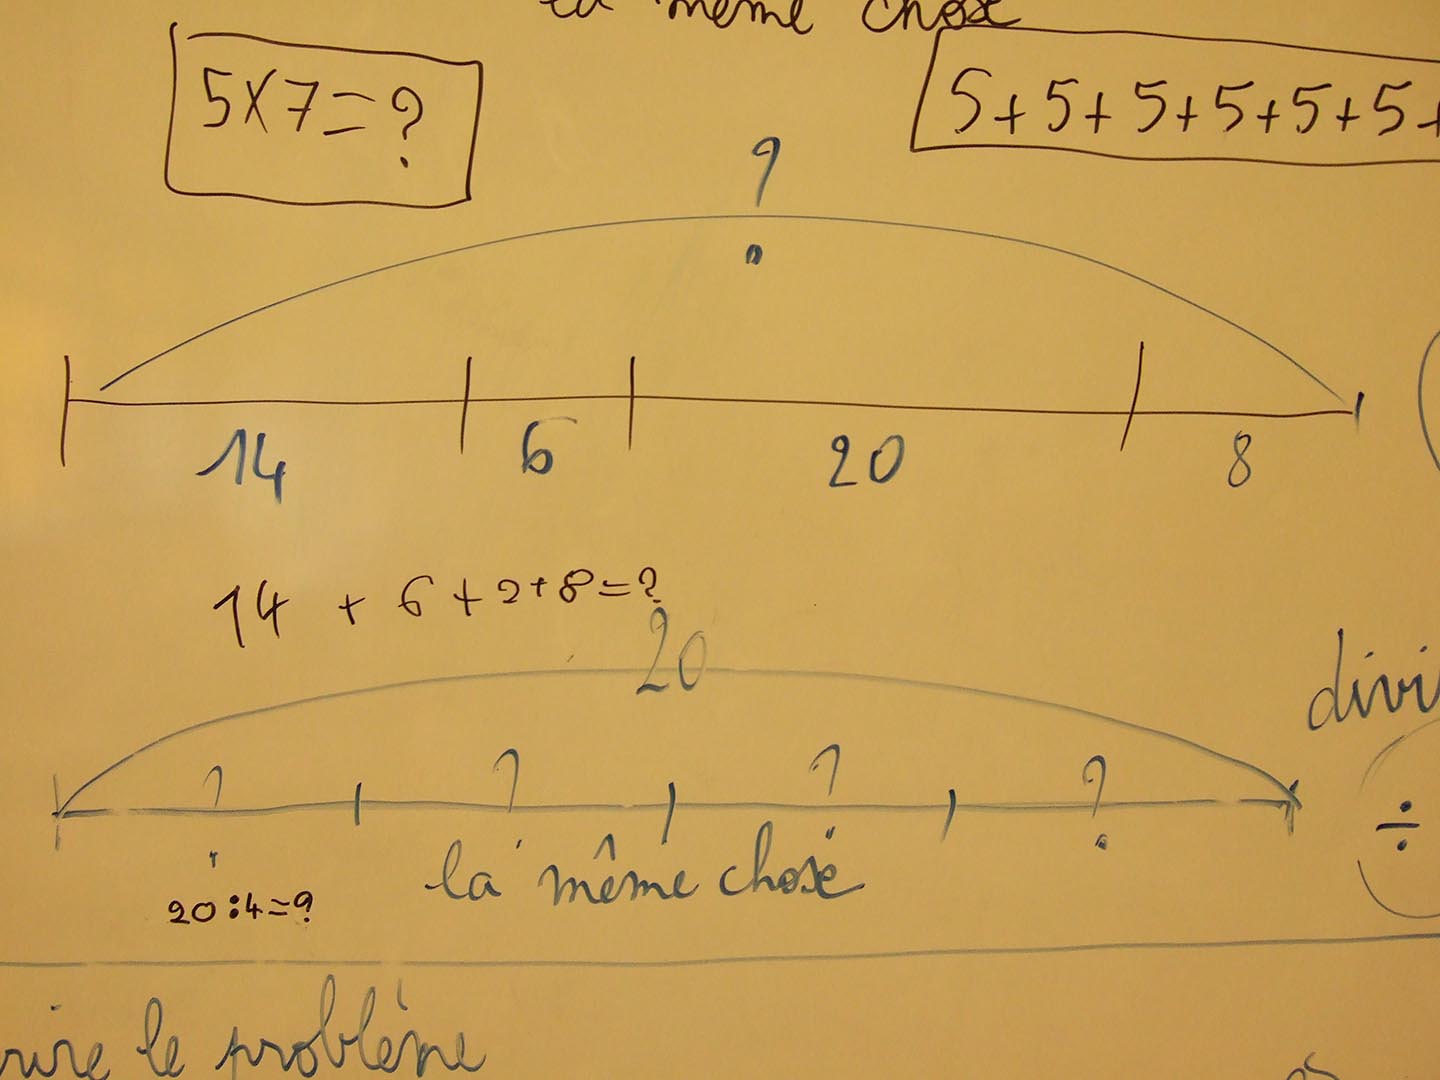 la même chose
5X7=?
5+5+5+5+5+5+
?
14 6 20 8
14 + 6 + 2+8=?
20
? ? ? ?
la même chose
20:4=?
divi
÷
rire le problème